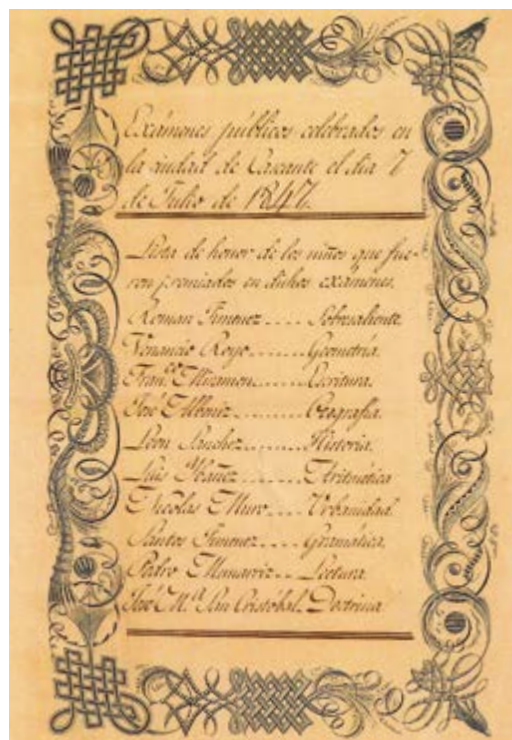 Exámenes públicos celebrados en
la ciudad de Cascante el dia 7
de Julio de 1847.
Lista de honor de los niños que fue-
ron premiados en dichos exámenes.
Roman Jimenez.... Sobresaliente.
Venancio Royo....... Geometría.
Fran.co Miramon..... Escritura.
José Albeniz......... Geografía.
Leon Sanchez........ Historia.
Luis Ybañez....... Aritmética
Nicolas Muro.... Urbanidad.
Santos Jimenez.... Gramatica.
Pedro Munarriz.. Lectura.
José M.a San Cristobal. Doctrina